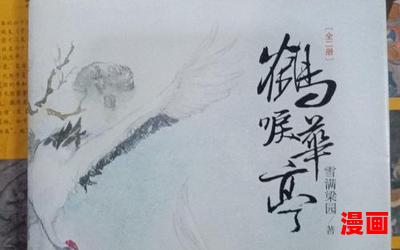 [全二册]
鹤唳华亭
雪满梁园 著
漫画